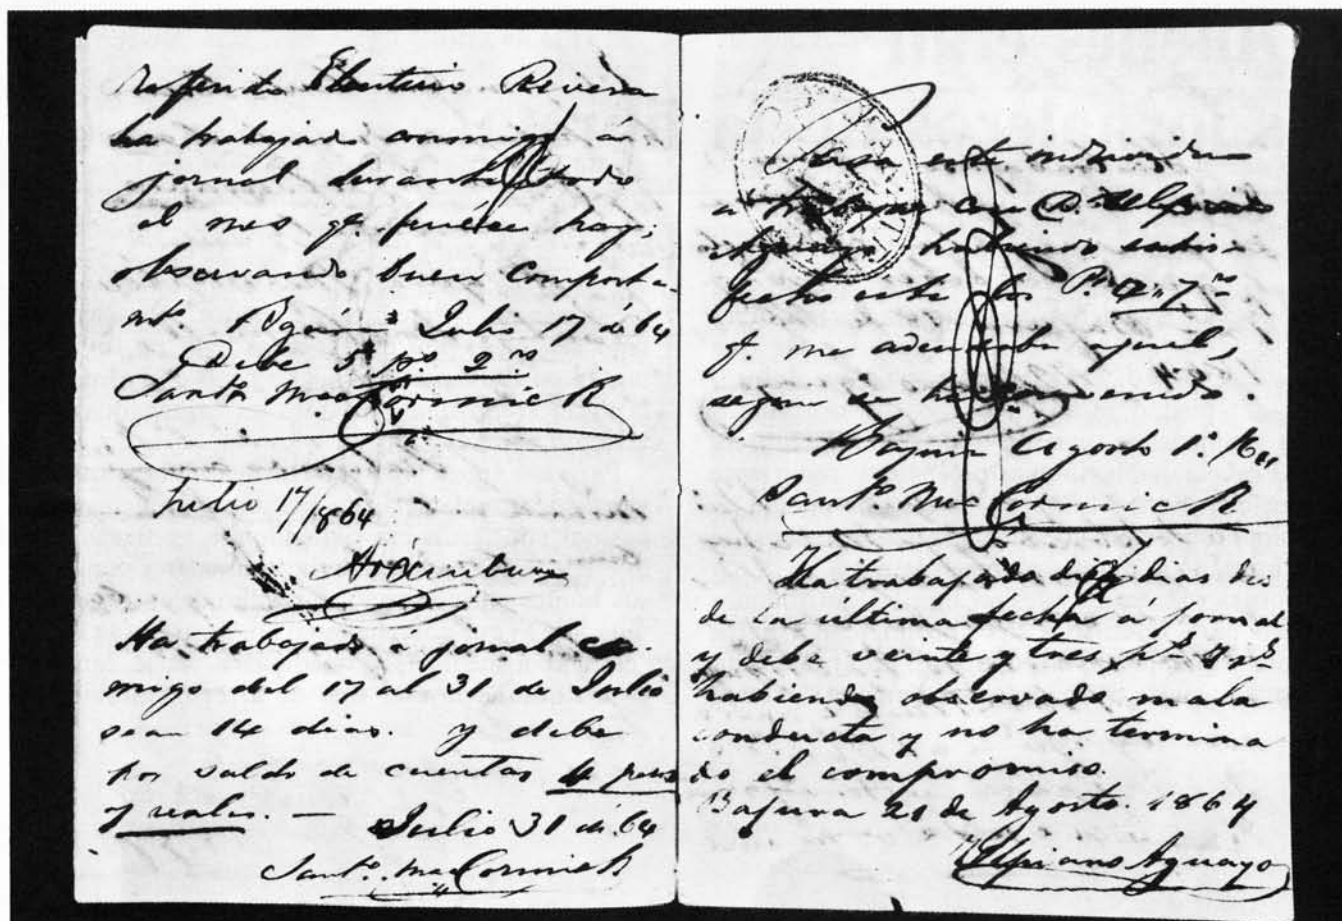 Referido Eleuterio Rivera
ha trabajado conmigo á
jornal durante todo
el mes qe. fenéce hoy;
observando buen comporta-
mto. Julio 17 de 64
Debe 5 ps. 2 rs.
Santo. MacCormick
Julio 17/1864
Ha trabajado á jornal con-
migo del 17 al 31 de Julio
sean 14 dias. y debe
por saldo de cuentas 4 pesos
7 reales. — Julio 31 de 64
Santo. MacCormick
Pasa este individuo
a trabajar con D. Ulpiano
Aguayo habiendo satis-
fecho este los Ps. 4 " 7 rs.
q. me adeudaba aquel,
segun se ha convenido.
Agosto 1o.
Santo. MacCormick
Ha trabajado dias des
de la última fecha á jornal
y debe veinte y tres ps. 7 rs.
habiendo observado mala
conducta y no ha termina
do el compromiso.
Bajura 21 de Agosto. 1864
Ulpiano Aguayo